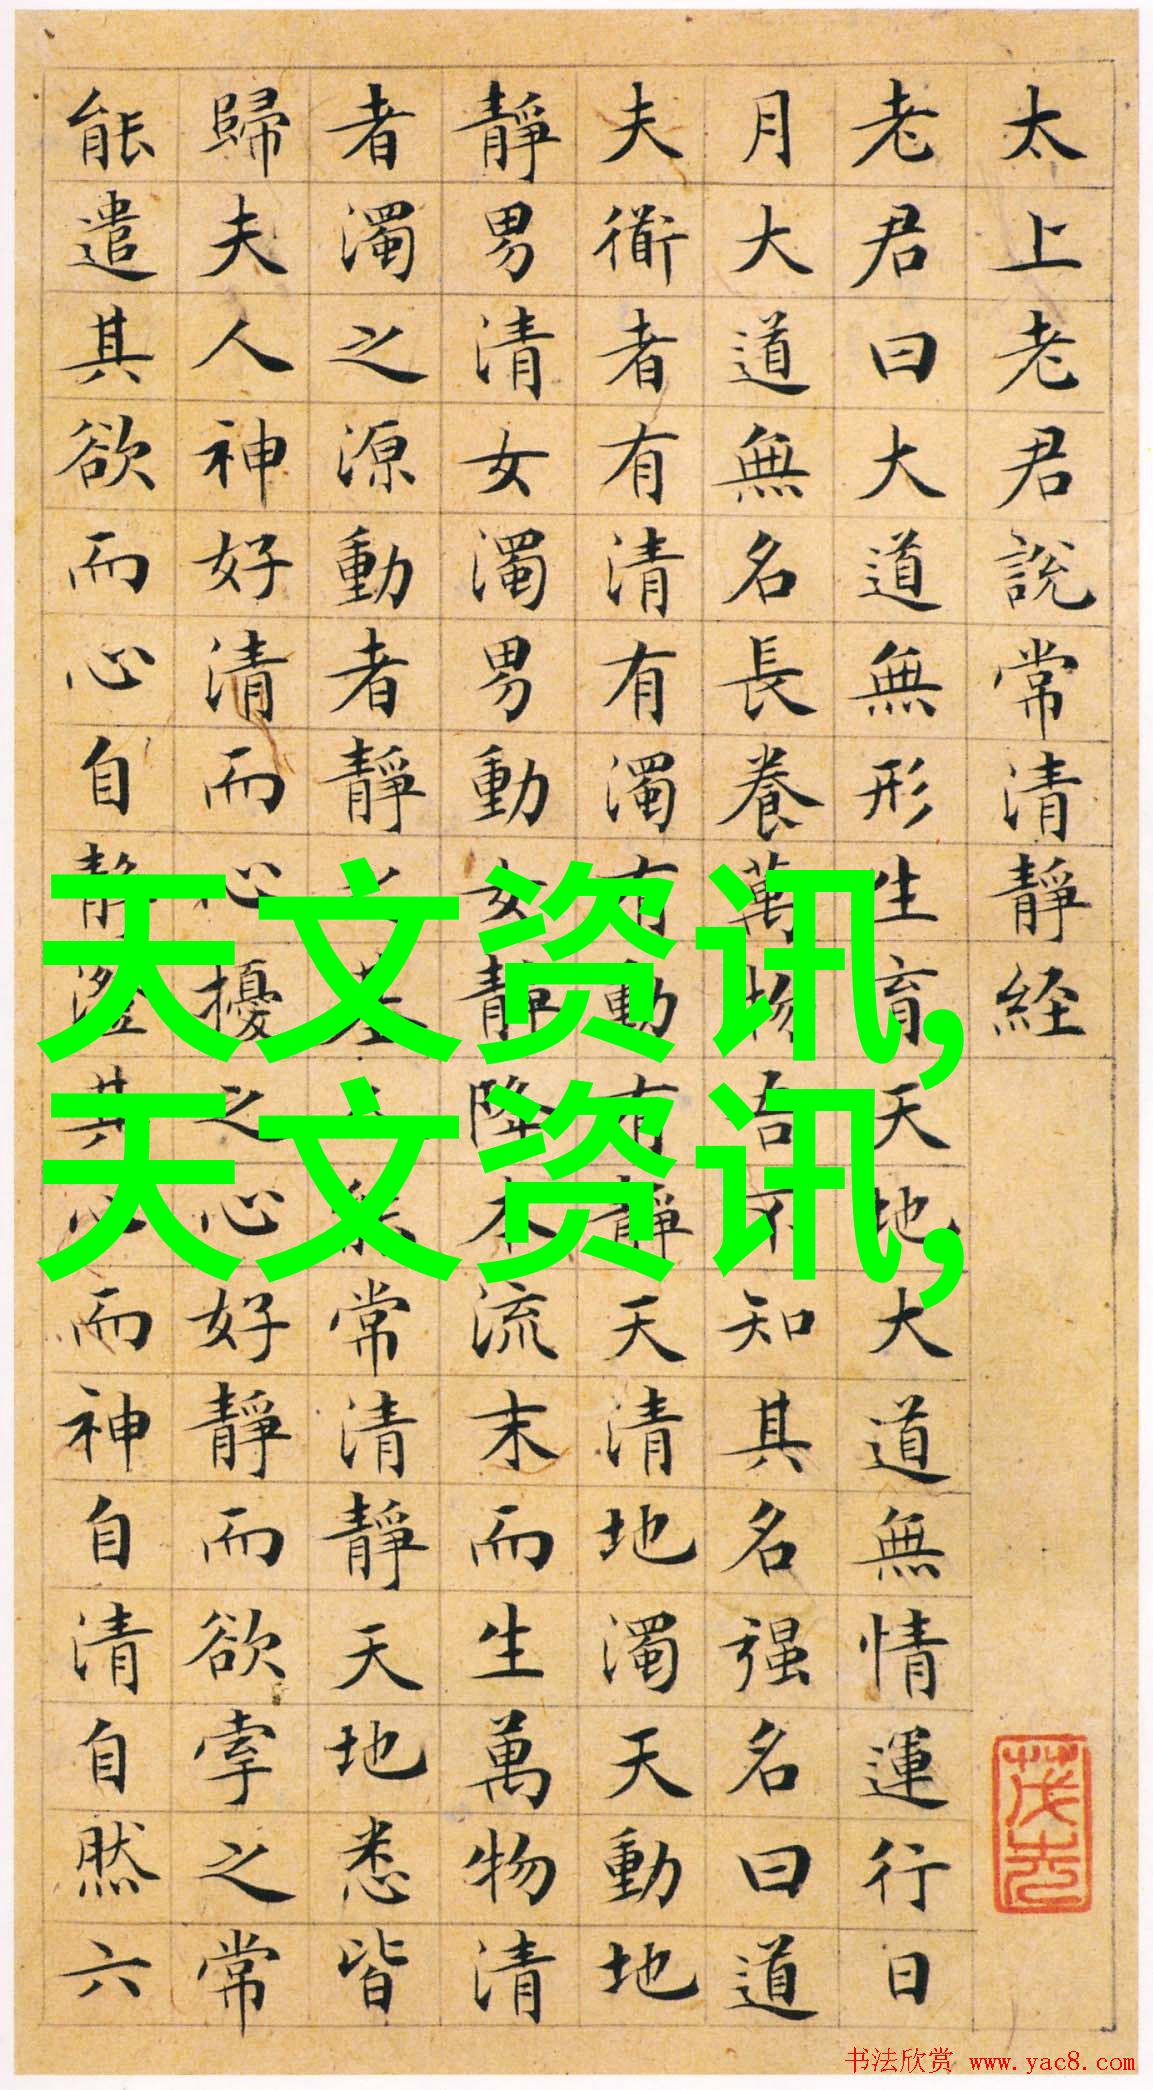 太上老君說常清靜経
老君曰大道無形生育天地大道無情運行日
月大道無名長養萬物吾不知其名强名曰道
夫衜者有清有濁有動有靜天清地濁天動地
靜男清女濁男動女靜降本流末而生萬物清
者濁之源動者靜之基人能常清靜天地悉皆
歸夫人神好清而心擾之心好靜而欲牽之常
能遣其欲而心自靜澄其心而神自清自然六
天文资讯,
天文资讯,
书法欣赏 www.yac8.com